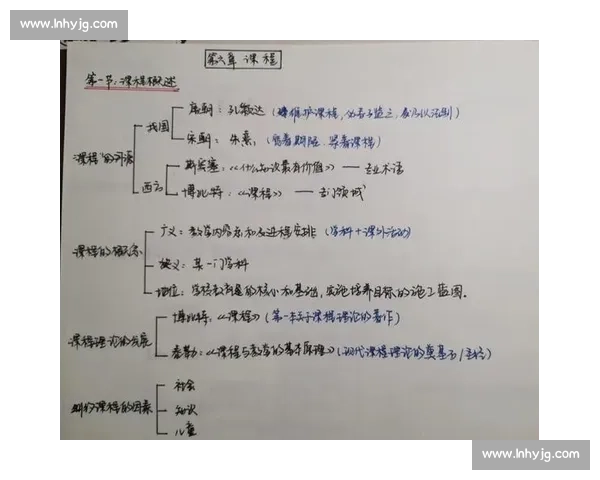 www.lnhyjg.com
第六章 课程
第一节:课程概述
唐朝:孔颖达(维护课程,必君子监之,乃得依法制)
我国
宋朝:朱熹:(宽着期限,紧着课程)
课程"的词源
斯宾塞:《什么知识最有价值》——专业术语
西方
博比特:《课程》——专门领域
广义:教学内容和及进程安排(学科+课外活动)
课程的概念
狭义:某一门学科
地位:学校教育的核心和基础,实施培养目标的施工蓝图。
博比特:《课程》(第一本关于课程理论的著作)
课程理论的发展
泰勒:《课程与教学的基本原理》(现代课程理论的奠基石/圣经)
社会
制约课程的因素
知识
儿童
www.lnhyjg.com